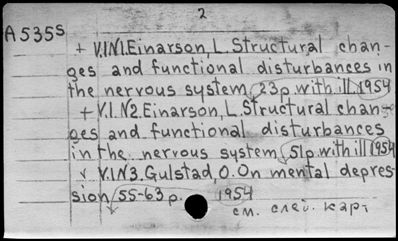 2
A535s
+ V.1.N1.Einarson, L. Structural chan-
ges and functional disturbances in
the nervous system, 23p.with ill.1954
+ V.1. N2. Einarson, L. Structural chan-
ges and functional disturbances
in the nervous system, 51p.with ill 1954
v V.1.N3. Gulstad, O. On mental depres-
sion, 55-63p. 1954
см. след. карт